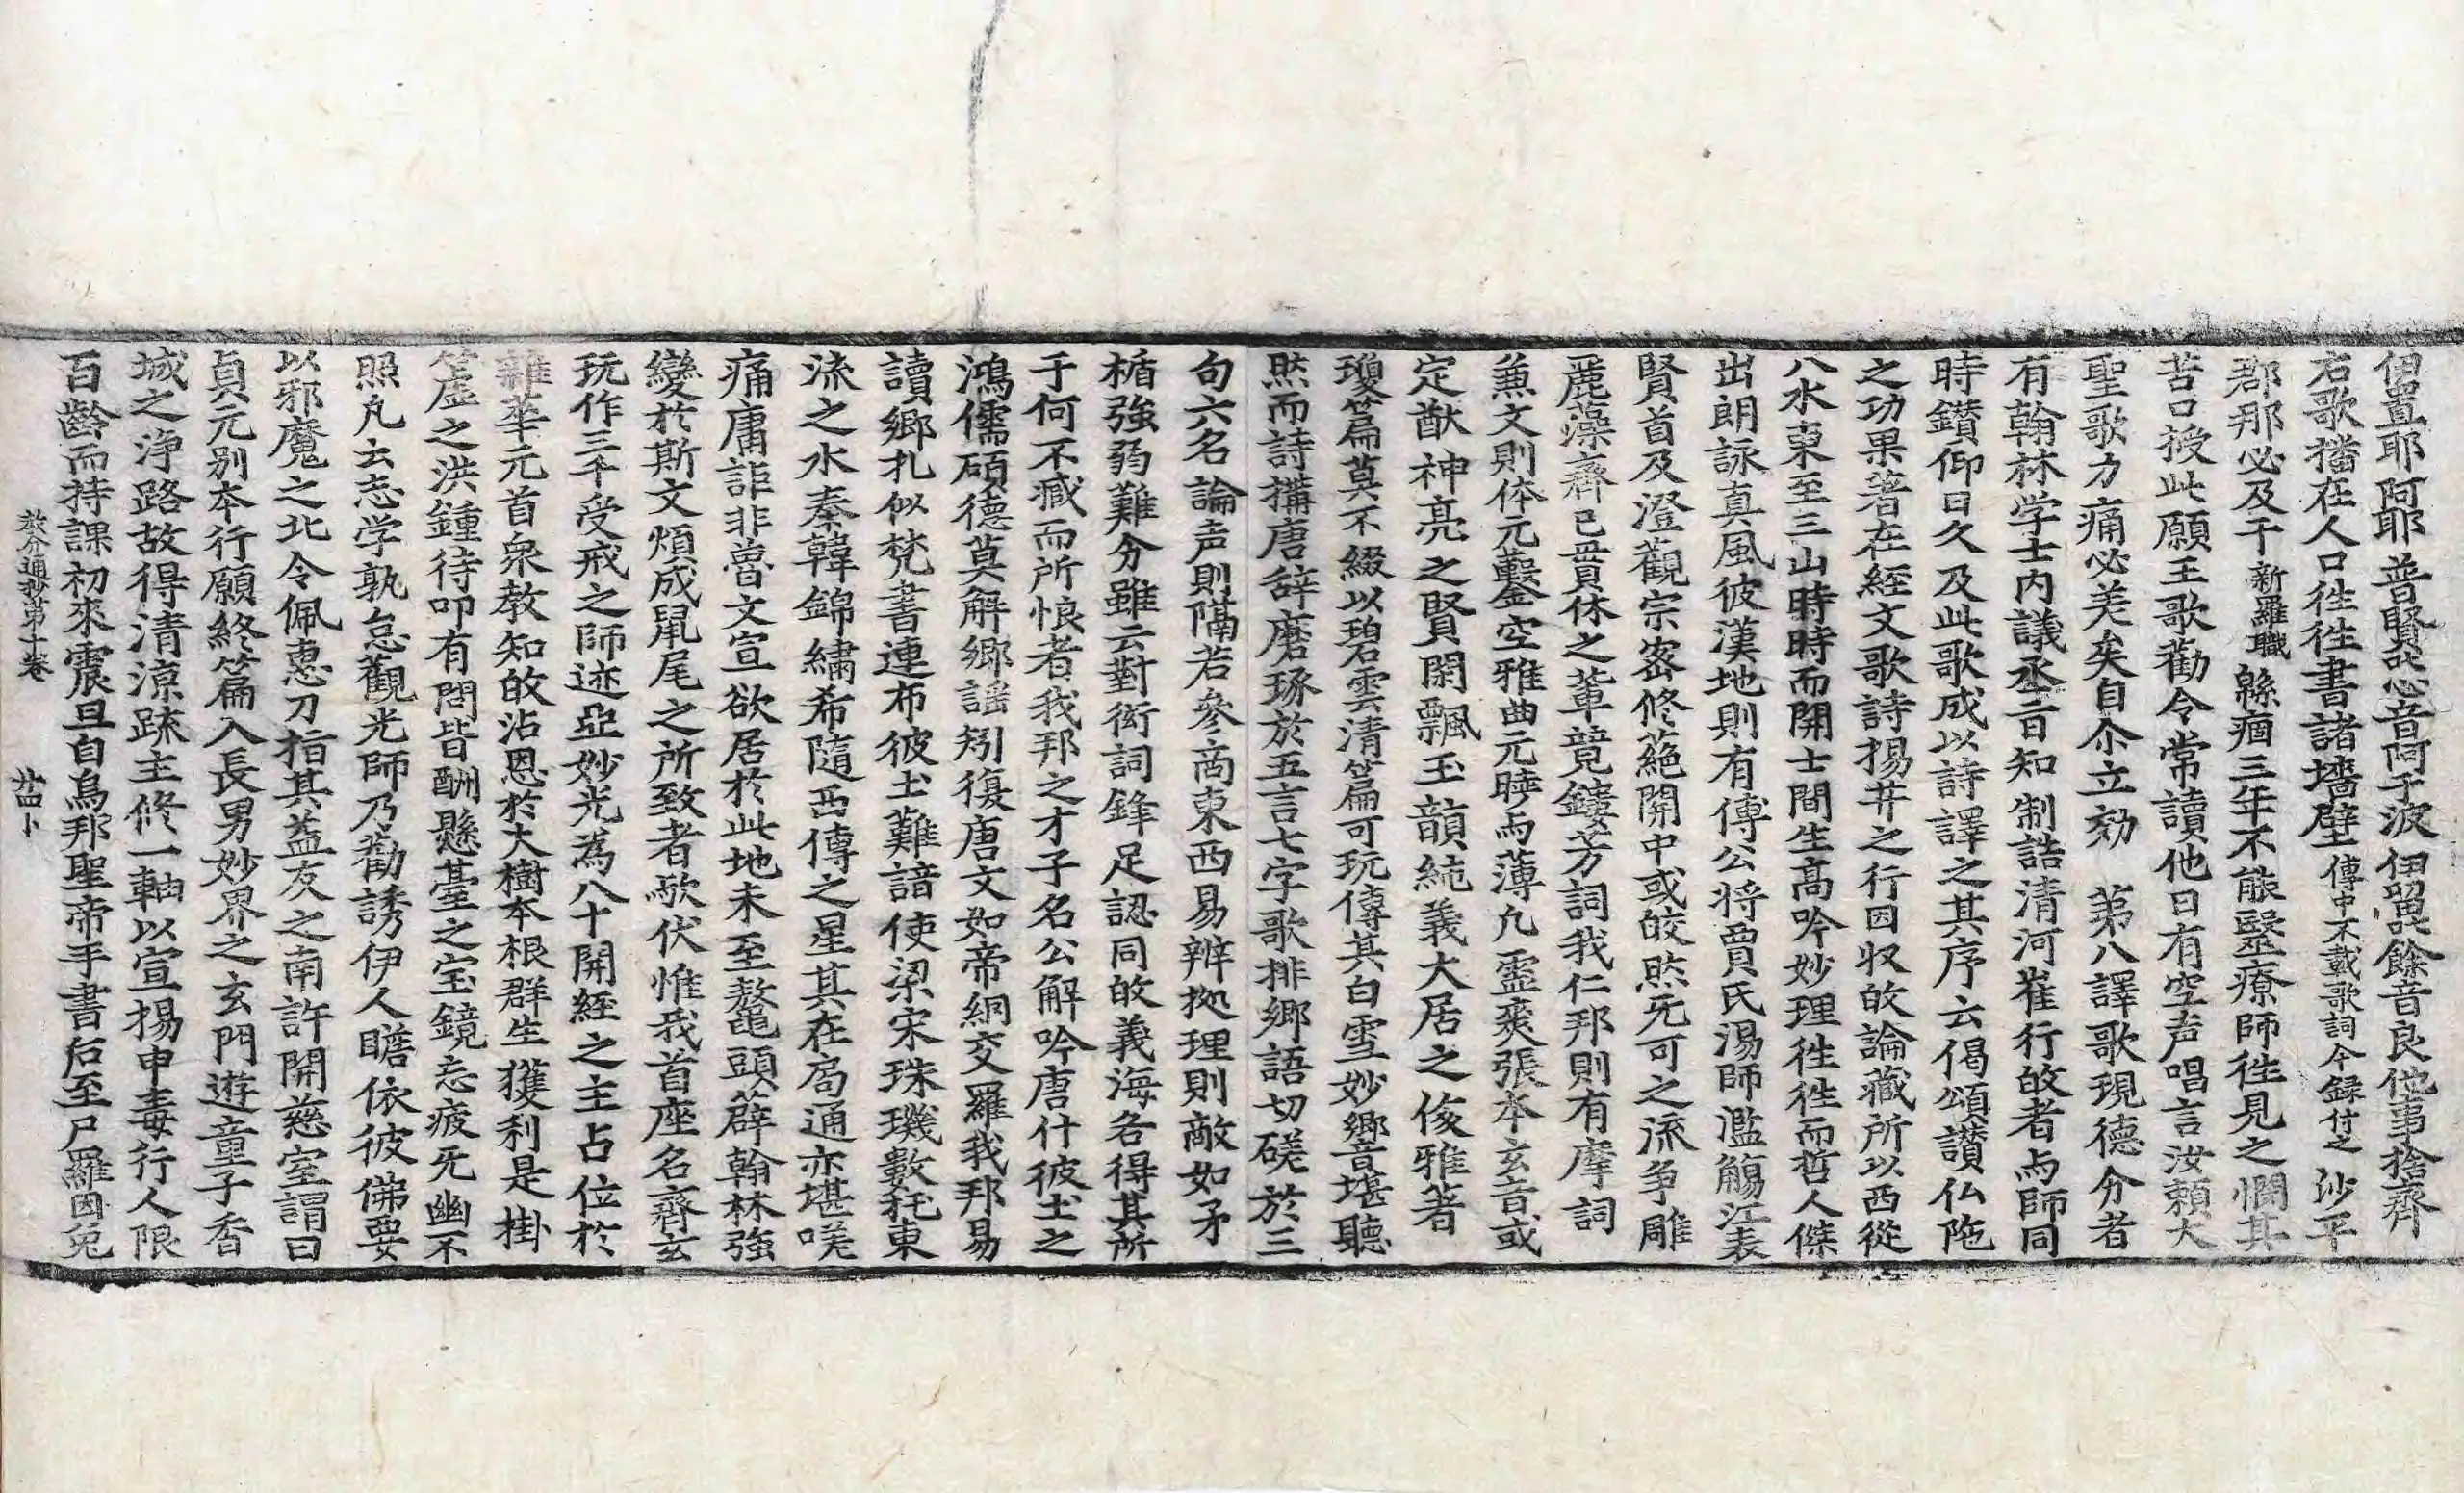 伊置耶阿耶 普賢叱心音阿于波 伊留叱餘音良他事捨齊
右歌播在人口徃徃書諸墻壁傳中不載歌詞今録付之 沙平
郡那必及干新羅職緜痼三年不能毉療師徃見之憫其
苦口授此願王歌勸令常讀他日有空声唱言汝頼大
聖歌力痛必差矣自尒立効 苐八譯歌現德分者
有翰林学士内議丞㫖知制誥清河崔行敀者与師同
時鑚仰日久及此歌成以詩譯之其序云偈頌讃仏陁
之功果著在経文歌詩揚𦬇之行因収敀論藏所以西從
八水東至三山時時而開士間生髙吟妙理徃徃而哲人傑
出朗詠真風彼漢地則有傅公将賈氏湯師濫觴江表
賢首及澄觀宗宻修葩關中或皎然无可之流争雕
麗藻齊已貫休之輩競鏤芳詞我仁邦則有摩詞
兼文則体元鑿空雅曲元曉与薄凡霊爽張本玄音或
定猷神亮之賢閑飄玉韻純義大居之俊雅著
瓊篇莫不綴以碧雲清篇可玩傳其白雪妙郷音堪聽
然而詩搆唐辞磨琢於五言七字歌排郷語切磋於三
句六名論声則隔若參商東西易辨㨿理則敵如矛
楯強弱難分雖云對衒詞鋒足認同敀義海各得其所
于何不臧而所恨者我邦之才子名公解吟唐什彼土之
鴻儒碩德莫解郷謡矧復唐文如帝網交羅我邦易
讀郷扎似梵書連布彼土難諳使梁宋珠璣數托東
流之水秦韓錦繡希隨西傳之星其在局通亦堪嗟
痛庸詎非魯文宣欲居於此地未至鼇頭薛翰林強
變於斯文煩成鼠尾之所致者歟伏惟我首座名齊玄
玩作三千受戒之師迹亞妙光為八十開経之主占位於
雜華元首衆教知敀沾恩於大樹本根群生獲利是掛
筐虚之洪鍾待叩有問皆酬懸臺之宝鏡忘疲无幽不
照凡云志学孰怠觀光師乃勸誘伊人瞻依彼佛要
以邪魔之北令佩惠刀指其益友之南許開慈室謂曰
貞元别本行願終篇入長男妙界之玄門遊童子香
城之浄路故得清涼䟽主修一軸以宣揚申毒行人限
百齡而持課初來震旦自烏邦聖帝手書后至尸羅因兔
教分通抄第十卷 廿四卜